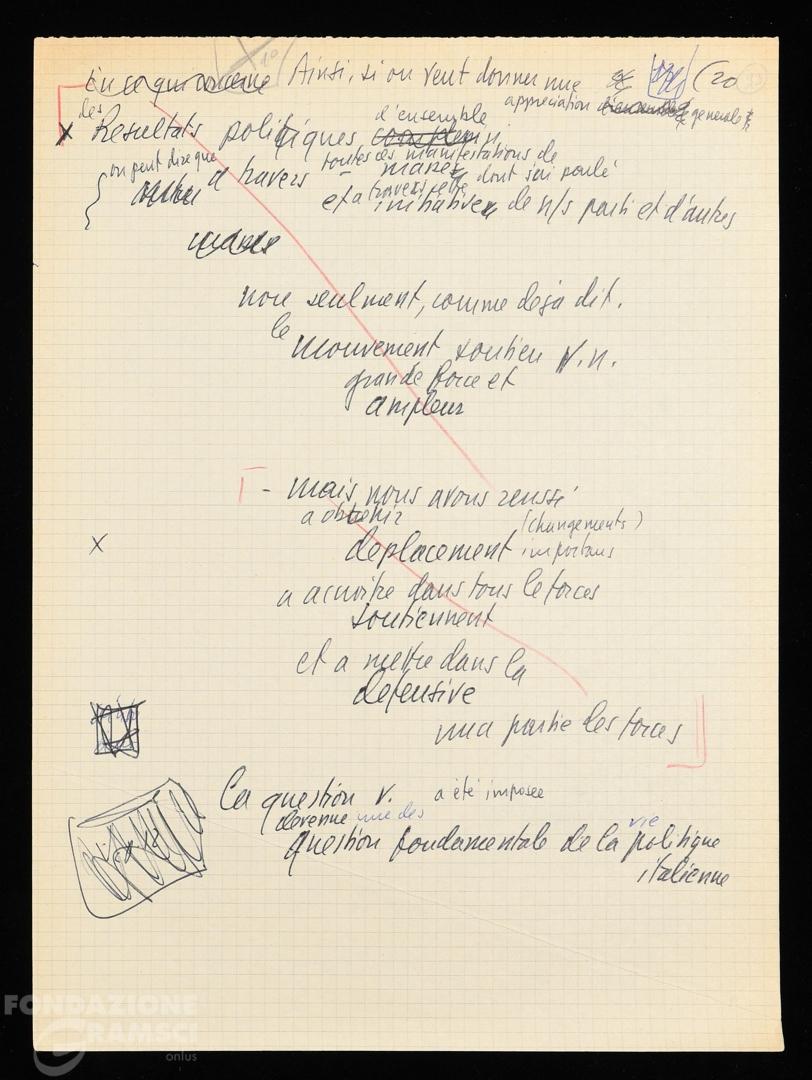 En ce qui concerne Ainsi, si on veut donner une (20
appreciation generale
des
Resultats politiques d'ensemble
on peut dire que a travers toutes ces manifestations de
masse dont j'ai parlé
et a travers cette initiative de n/s parti et d'autres
non seulment, comme dejà dit.
le
mouvement soutien V.n.
grande force et
ampleur
- mais nous avons reussi
a obtenir (changements)
deplacement importans
a acroitre dans tous le forces
soutiennent
et a mettre dans la
defensive
una partie des forces
La question V. a été imposee
devenue une des
question fondamentale de la vie politique
italienne
FONDAZIONE
GRAMSCI
onlus